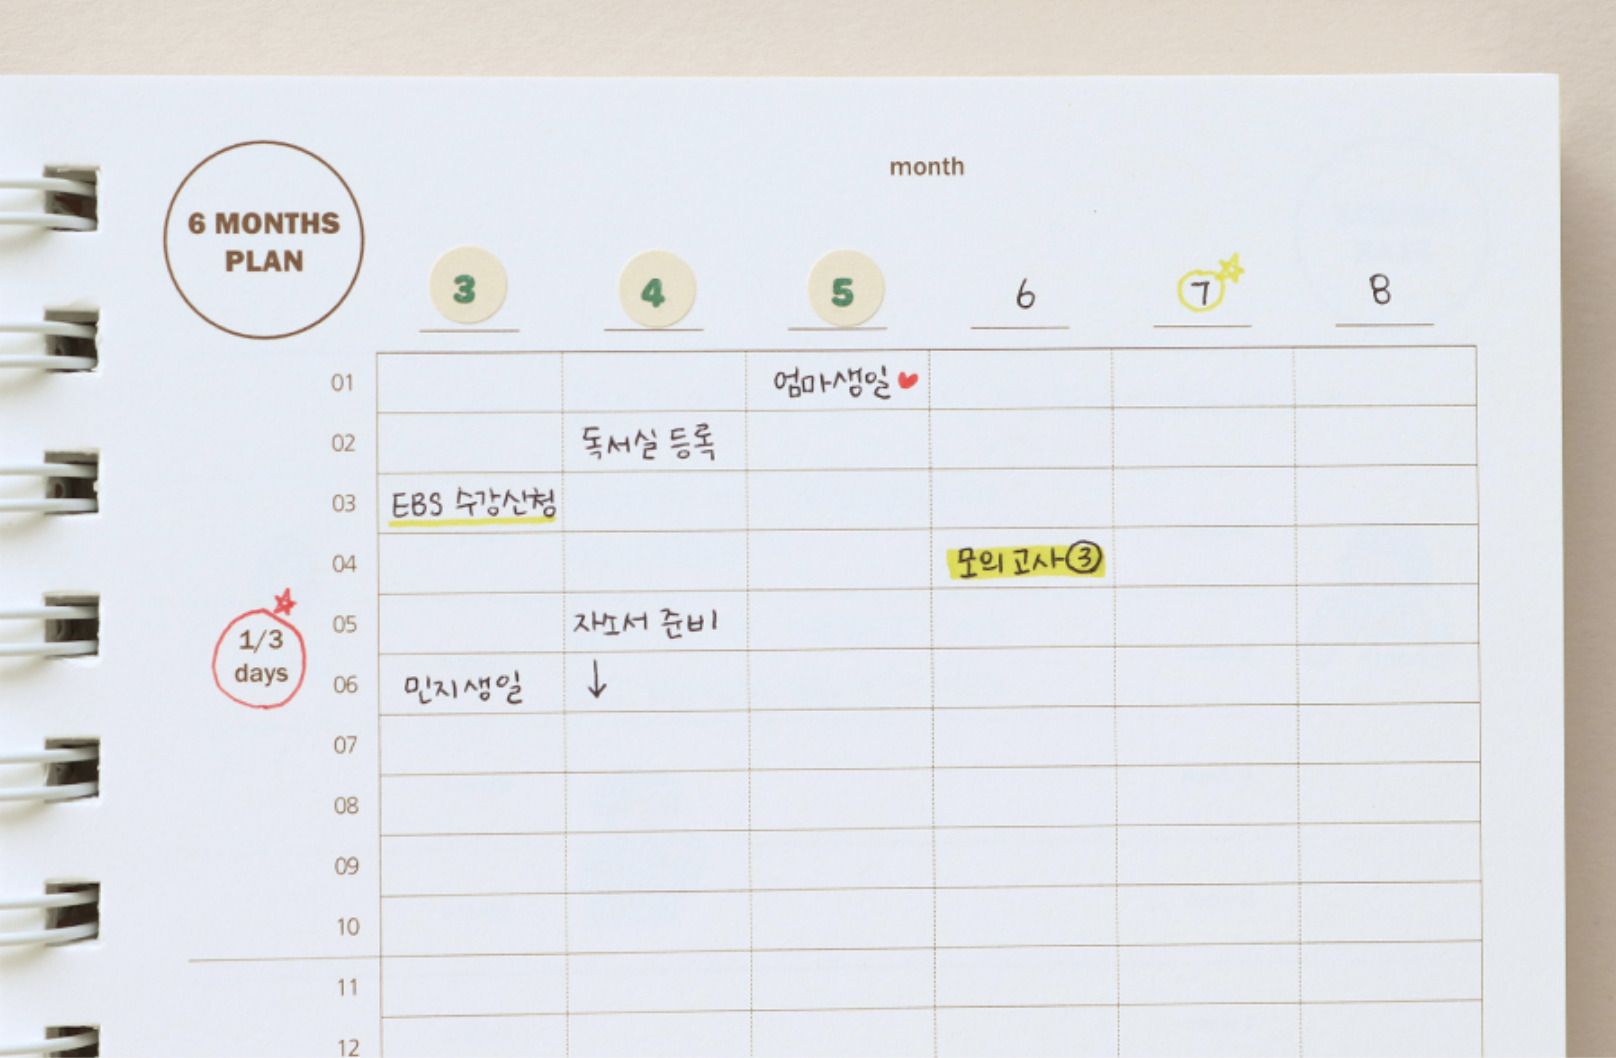 month
6 MONTHS
PLAN
3 4 5 6 7 8
01 엄마생일
02 독서실 등록
03 EBS 수강신청
04 모의고사③
1/3
days
05 자소서 준비
06 민지생일 ↓
07
08
09
10
11
12